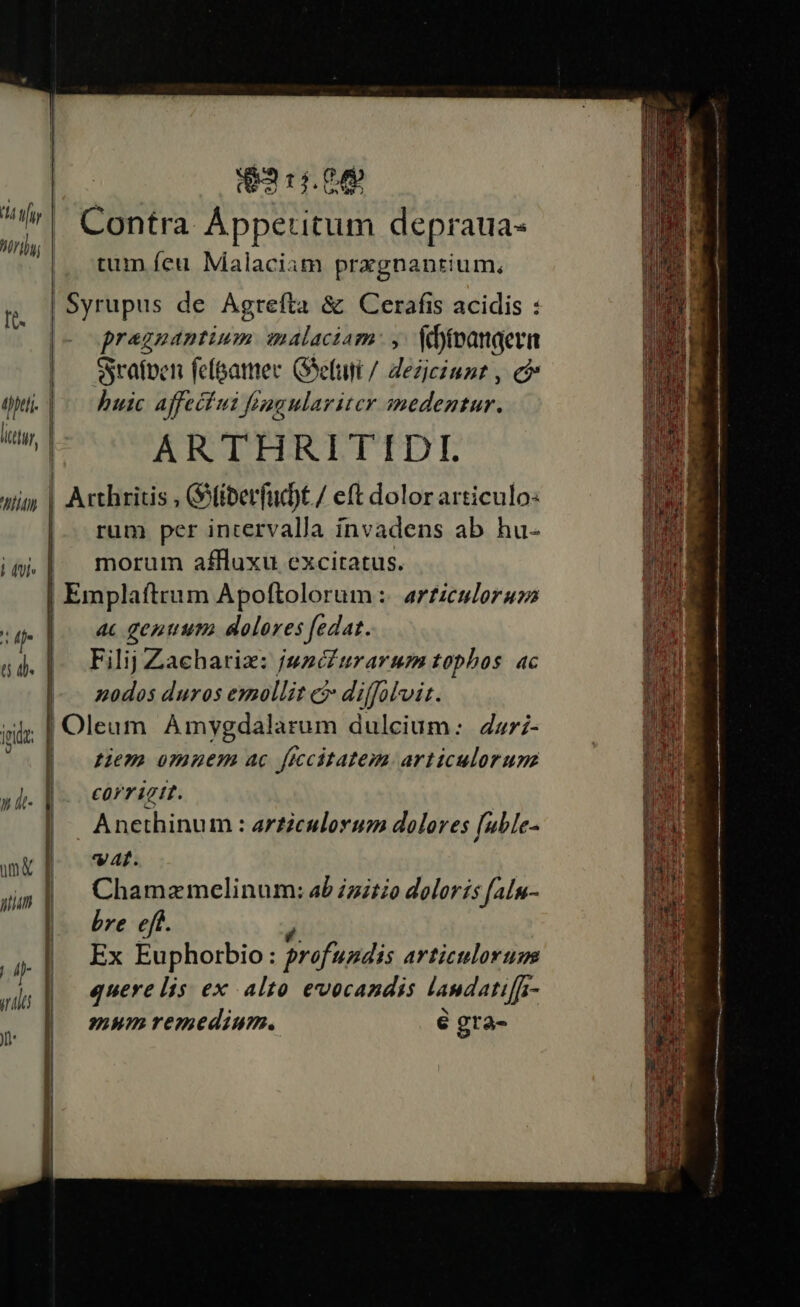 15.
Contra Appetitum depraua-
tum ſeu Malaciam prægnantium.
Syrupus de Agreſta & Ceraſis acidis :
prægnantium malaciam , ſchwangern
Frawen ſeltzamer Gelüſt / dejiciunt , &
huic affectui ſingulariter medentur.
ARTHRITIDI.
Arthritis , Gliderſucht / eſt dolor articulo-
rum per intervalla invadens ab hu-
morum affluxu excitatus.
Emplaſtrum Apoſtolorum : articulorum
ac genuum dolores ſedat.
Filij Zachariæ: juncturarum tophos ac
nodos duros emollit & diſſolvit.
Oleum Amygdalarum dulcium: duri-
tiem omnem ac ſiccitatem articulorum
corrigit.
Anethinum : articulorum dolores ſuble-
vat.
Chamæmelinum: ab initio doloris ſalu-
bre eſt.
Ex Euphorbio : profundis articulorum
querelis ex alto evocandis laudatiſſi-
mum remedium.
è gra-